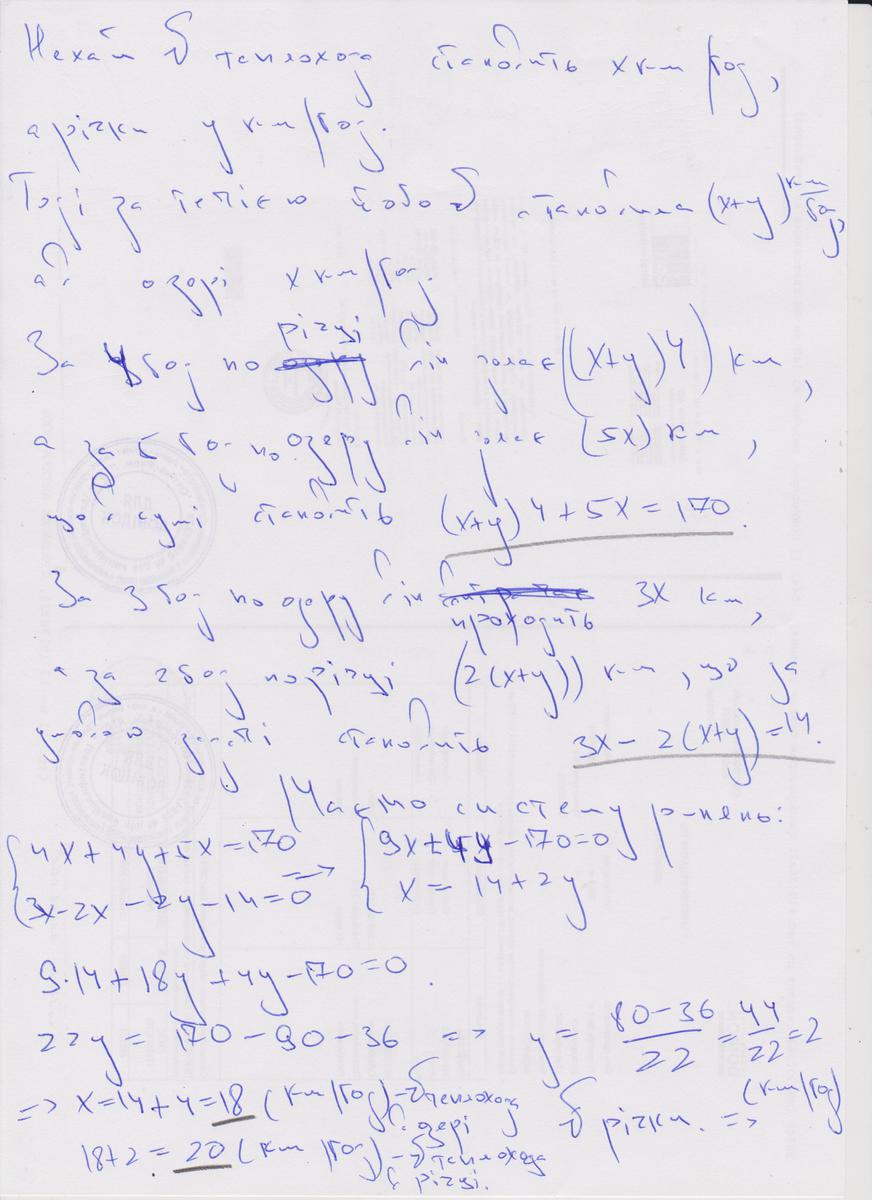 Нехай υ теплохода становить x км/год,
а річки y км/год.
Тоді за течією його υ становила (x+y) км/год,
а в озері x км/год.
За 4 год по річці він долає ((x+y)4) км,
а за 5 год по озеру він долає (5x) км,
що в сумі становить (x+y)4+5x=170.
За 3 год по озеру він проходить 3x км,
а за 2 год по річці (2(x+y)) км, що за
умовою задачі становить 3x-2(x+y)=14.
Маємо систему р-нень:
4x+4y+5x=170 => 9x+4y-170=0
3x-2x-2y-14=0 x=14+2y
9·14+18y+4y-170=0.
22y=170-90-36 => y= 80-36/22 = 44/22 =2 (км/год)
υ річки. =>
=> x=14+4=18 (км/год)-υ теплохода в озері
18+2=20 (км/год)-υ теплохода в річці.